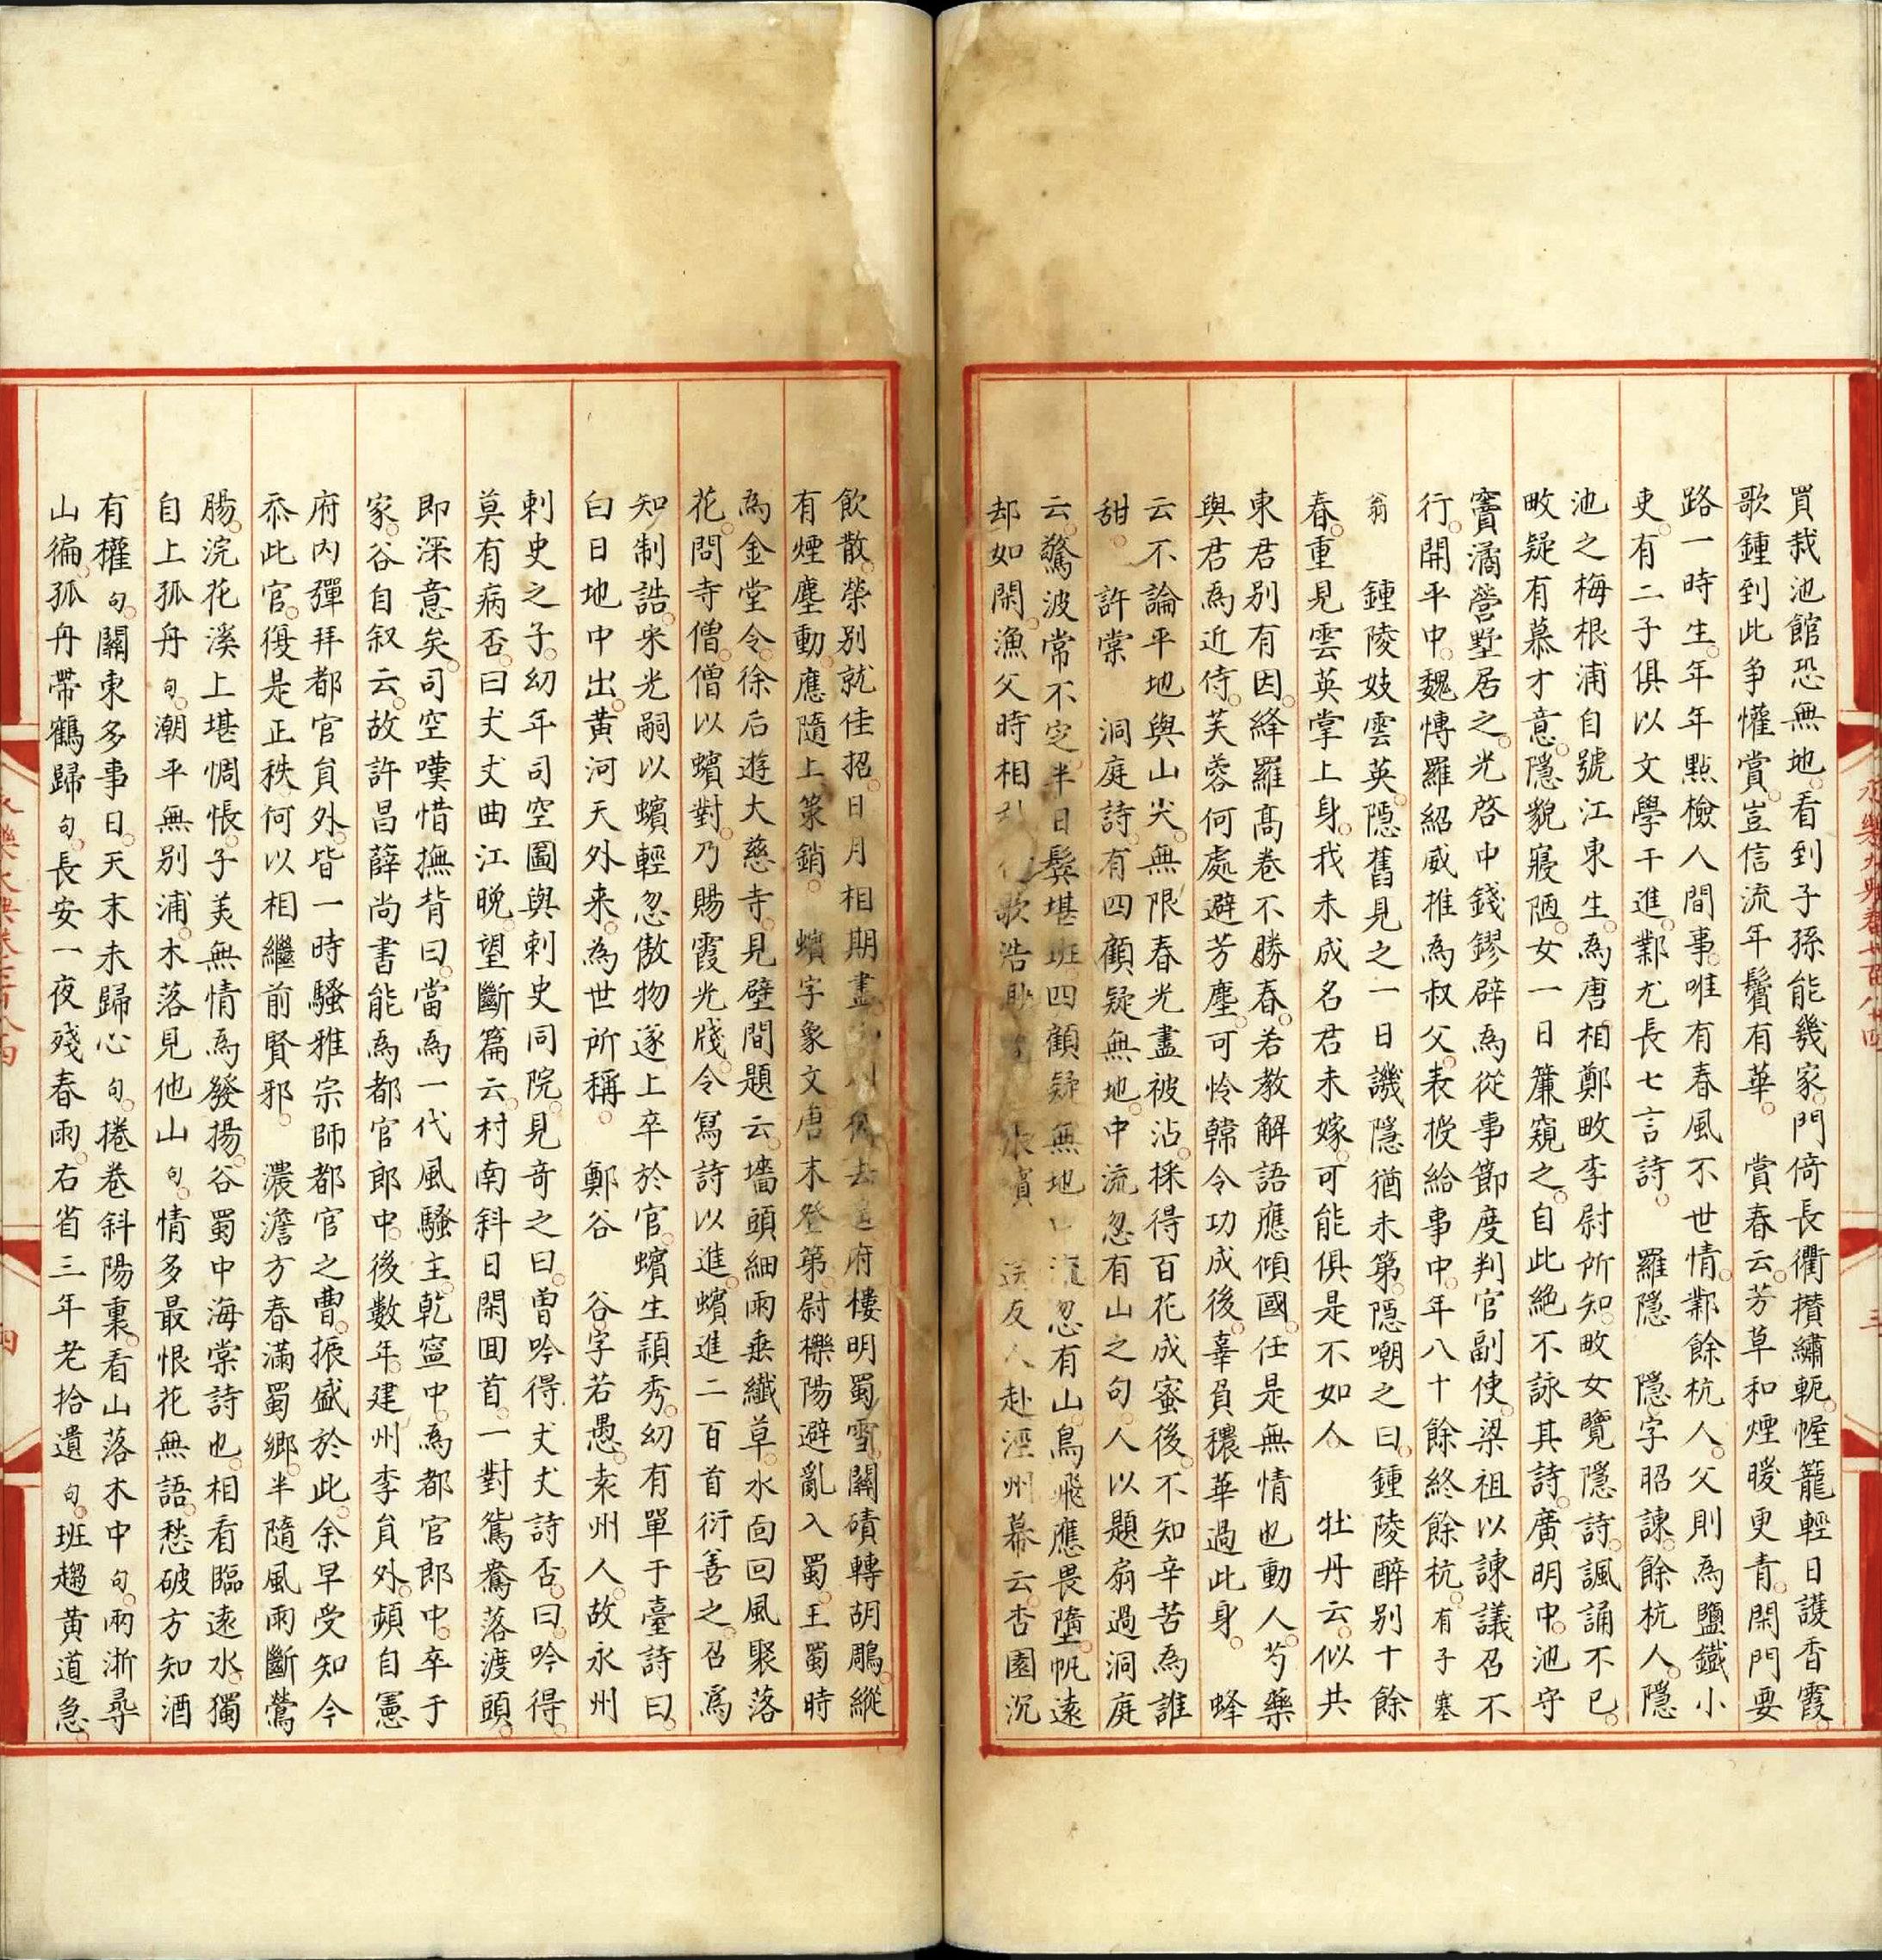 買栽池館恐無地看到子孫能幾家門倚長衢攅繡軛幄籠輕日護香霞
歌鍾到此争懽賞豈信流年鬢有華　賞春云芳草和煙暖更青閑門要
路一時生年年點檢人間事唯有春風不世情鄴餘杭人父則為鹽鐵小
吏有二子俱以文學干進鄴尤長七言詩　羅隱　隱字昭諫餘杭人隱
池之梅根浦自號江東生為唐相鄭畋李尉所知畋女覽隱詩諷誦不已
畋疑有慕才意隱貌寢陋女一日簾窺之自此絶不詠其詩廣明中池守
竇潏營墅居之光啓中錢鏐辟為從事節度判官副使梁祖以諫議召不
行開平中魏愽羅紹威推為叔父表授給事中年八十餘終餘杭有子塞
翁　鍾陵妓雲英隱舊見之一日譏隱猶未第隱嘲之曰鍾陵醉别十餘
春重見雲英掌上身我未成名君未嫁可能俱是不如人　牡丹云似共
東君别有因絳羅髙卷不勝春若教解語應傾國任是無情也動人芍藥
與君為近侍芙蓉何處避芳塵可怜韓令功成後辜負穠華過此身　蜂
云不論平地與山尖無限春光盡被沾採得百花成蜜後不知辛苦為誰
甜　許棠　洞庭詩有四顧疑無地中流忽有山之句人以題扇過洞庭
云驚波常不定半日鬢堪班四顧疑無地中流忽有山鳥飛應畏墮帆遠
却如閑漁父時相歌浩　送友人赴涇州幕云杏園沉
飲散榮别就佳招日月相期盡去府樓明蜀雪關磧轉胡鵰縱
有煙塵動應隨上策銷　蠙字象文唐末登第尉櫟陽避亂入蜀王蜀時
為金堂令徐后遊大慈寺見壁間題云墻頭細雨垂纎草水面回風聚落
花問寺僧僧以蠙對乃賜霞光牋令寫詩以進蠙進二百首衍善之召爲
知制誥宋光嗣以蠙輕忽傲物遂上卒於官蠙生頴秀幼有單于臺詩曰
白日地中出黄河天外来為世所稱　鄭谷　谷字若愚袁州人故永州
刺史之子幼年司空圖與刺史同院見奇之曰曽吟得丈丈詩否曰吟得
莫有病否曰丈丈曲江晚望斷篇云村南斜日閑囬首一對鴛鴦落渡頭
即深意矣司空嘆惜撫背曰當為一代風騷主乾寧中為都官郎中卒于
家谷自叙云故許昌薛尚書能為都官郎中後數年建州李員外頻自憲
府内彈拜都官員外皆一時騷雅宗師都官之曹振盛於此余早受知今
忝此官復是正秩何以相繼前賢邪　濃澹方春滿蜀鄉半隨風雨斷鶯
腸浣花溪上堪惆悵子美無情為發揚谷蜀中海棠詩也相看臨遠水獨
自上孤舟句潮平無别浦木落見他山句情多最恨花無語愁破方知酒
有權句關東多事日天末未歸心句捲卷斜陽裏看山落木中句兩浙尋
山徧孤舟帶鶴歸句長安一夜殘春雨右省三年老拾遺句班趨黄道急